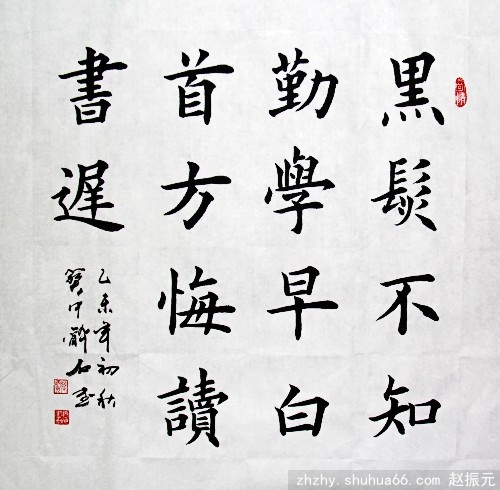 黑髮不知
勤學早白
首方悔讀
書遲
乙未年初秋
zhzhy.shuhua66.com 赵振元